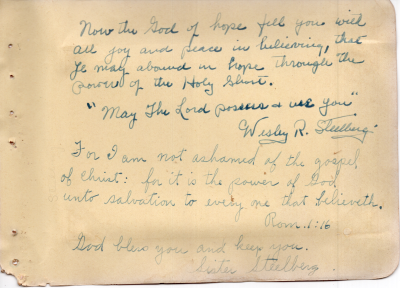 Now the God of hope fill you with
all joy and peace in believing, that
Ye may abound in hope through the
power of the Holy Ghost.
"May The Lord possess & use you"
Wesley R. Steelberg.
For I am not ashamed of the gospel
of Christ: for it is the power of God
unto salvation to every one that believeth.
Rom. 1:16
God bless you and keep you.
Sister Steelberg.